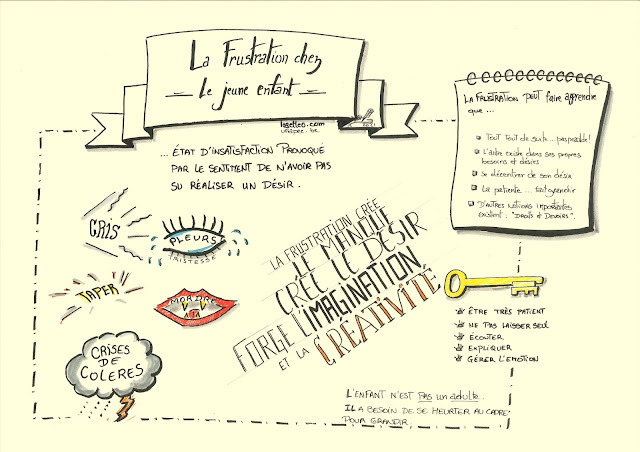 La Frustration chez
Le jeune enfant
lasette6.com
ufapec.be
... ÉTAT D'INSATISFACTION PROVOQUÉ
PAR LE SENTIMENT DE N'AVOIR PAS
SU RÉALISER UN DÉSIR.
LA FRUSTRATION PEUT faire apprendre
que ...
Tout Tout de suite... pas possible!
L'autre existe dans ses propres
besoins et désirs
Se décentrer de son désir
La patiente ... fait grandir
D'autres notions importantes
existent : "Droits et Devoirs".
CRIS
PLEURS
TRISTESSE
TAPER
MORDRE
CRISES
DE
COLERES
LA FRUSTRATION CRÉE
LE MANQUE
CRÉE LE DESIR
FORGE L'IMAGINATION
ET LA CRÉATIVITÉ
ÊTRE TRÈS PATIENT
NE PAS LAISSER SEUL
ÉCOUTER
EXPLIQUER
GÉRER L'EMOTION
L'ENFANT N'EST PAS un adulte..
IL A BESOIN DE SE HEURTER AU CADRE
POUR GRANDIR.